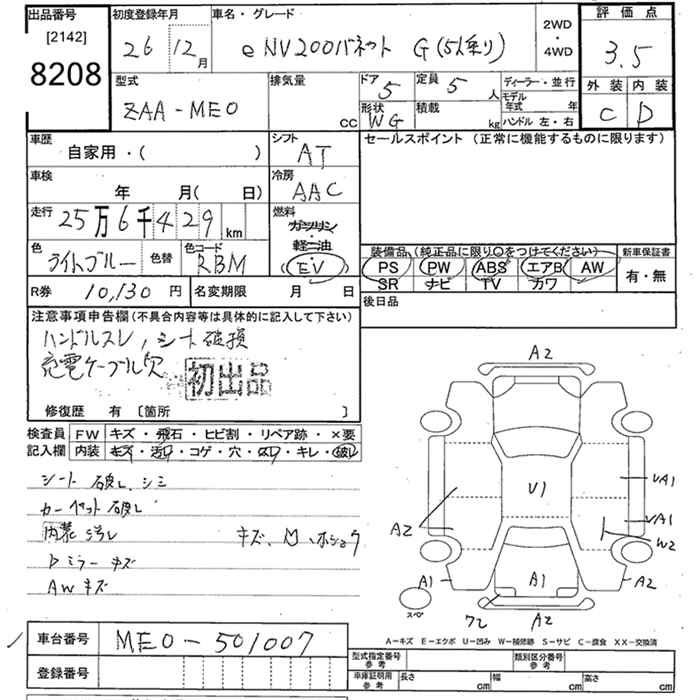 出品番号 初度登録年月 車名・グレード 2WD・4WD 評価点
[2142]
8208 26 12月 e NV200バネット G(5人乗り) 3.5
外装 内装
C D
型式 排気量 ドア 定員 ディーラー・並行
ZAA-ME0 cc 5 5 人 モデル年式 年
形状 積載 ハンドル 左・右
WG kg
車歴 シフト セールスポイント (正常に機能するものに限ります)
自家用・( ) AT
車検 冷房
年 月( 日) AAC
走行 燃料
25万6千429km ガソリン・軽油
(EV)
色 色替 色コード 装備品(純正品に限り○をつけてください) 新車保証書
ライトブルー RBM PS PW ABS エアB AW 有・無
SR ナビ TV カワ
R券 10,130円 名変期限 月 日 後日品
注意事項申告欄(不具合内容等は具体的に記入して下さい)
ハンドルスレ, シート破損
充電ケーブル欠
初出品
修復歴 有 [箇所 ]
検査員 FW キズ・飛石・ヒビ割・リペア跡・×要
記入欄 内装 キズ・汚レ・コゲ・穴・スレ・キレ・破レ
シート 破レ、シミ
カーペット破レ
内装 汚レ
キズ、凹、ホショウ
ドミラー キズ
AW キズ
A2
U1
VA1
VA1
W2
A2
A1
A1
A2
ワレ
A2
スペア
A-キズ E-エクボ U-凹み W-補修跡 S-サビ C-腐食 XX-交換済
車台番号 ME0-501007
登録番号
型式指定番号 参考 類別区分番号 参考
車庫証明用 参考 長さ cm 幅 cm 高さ cm